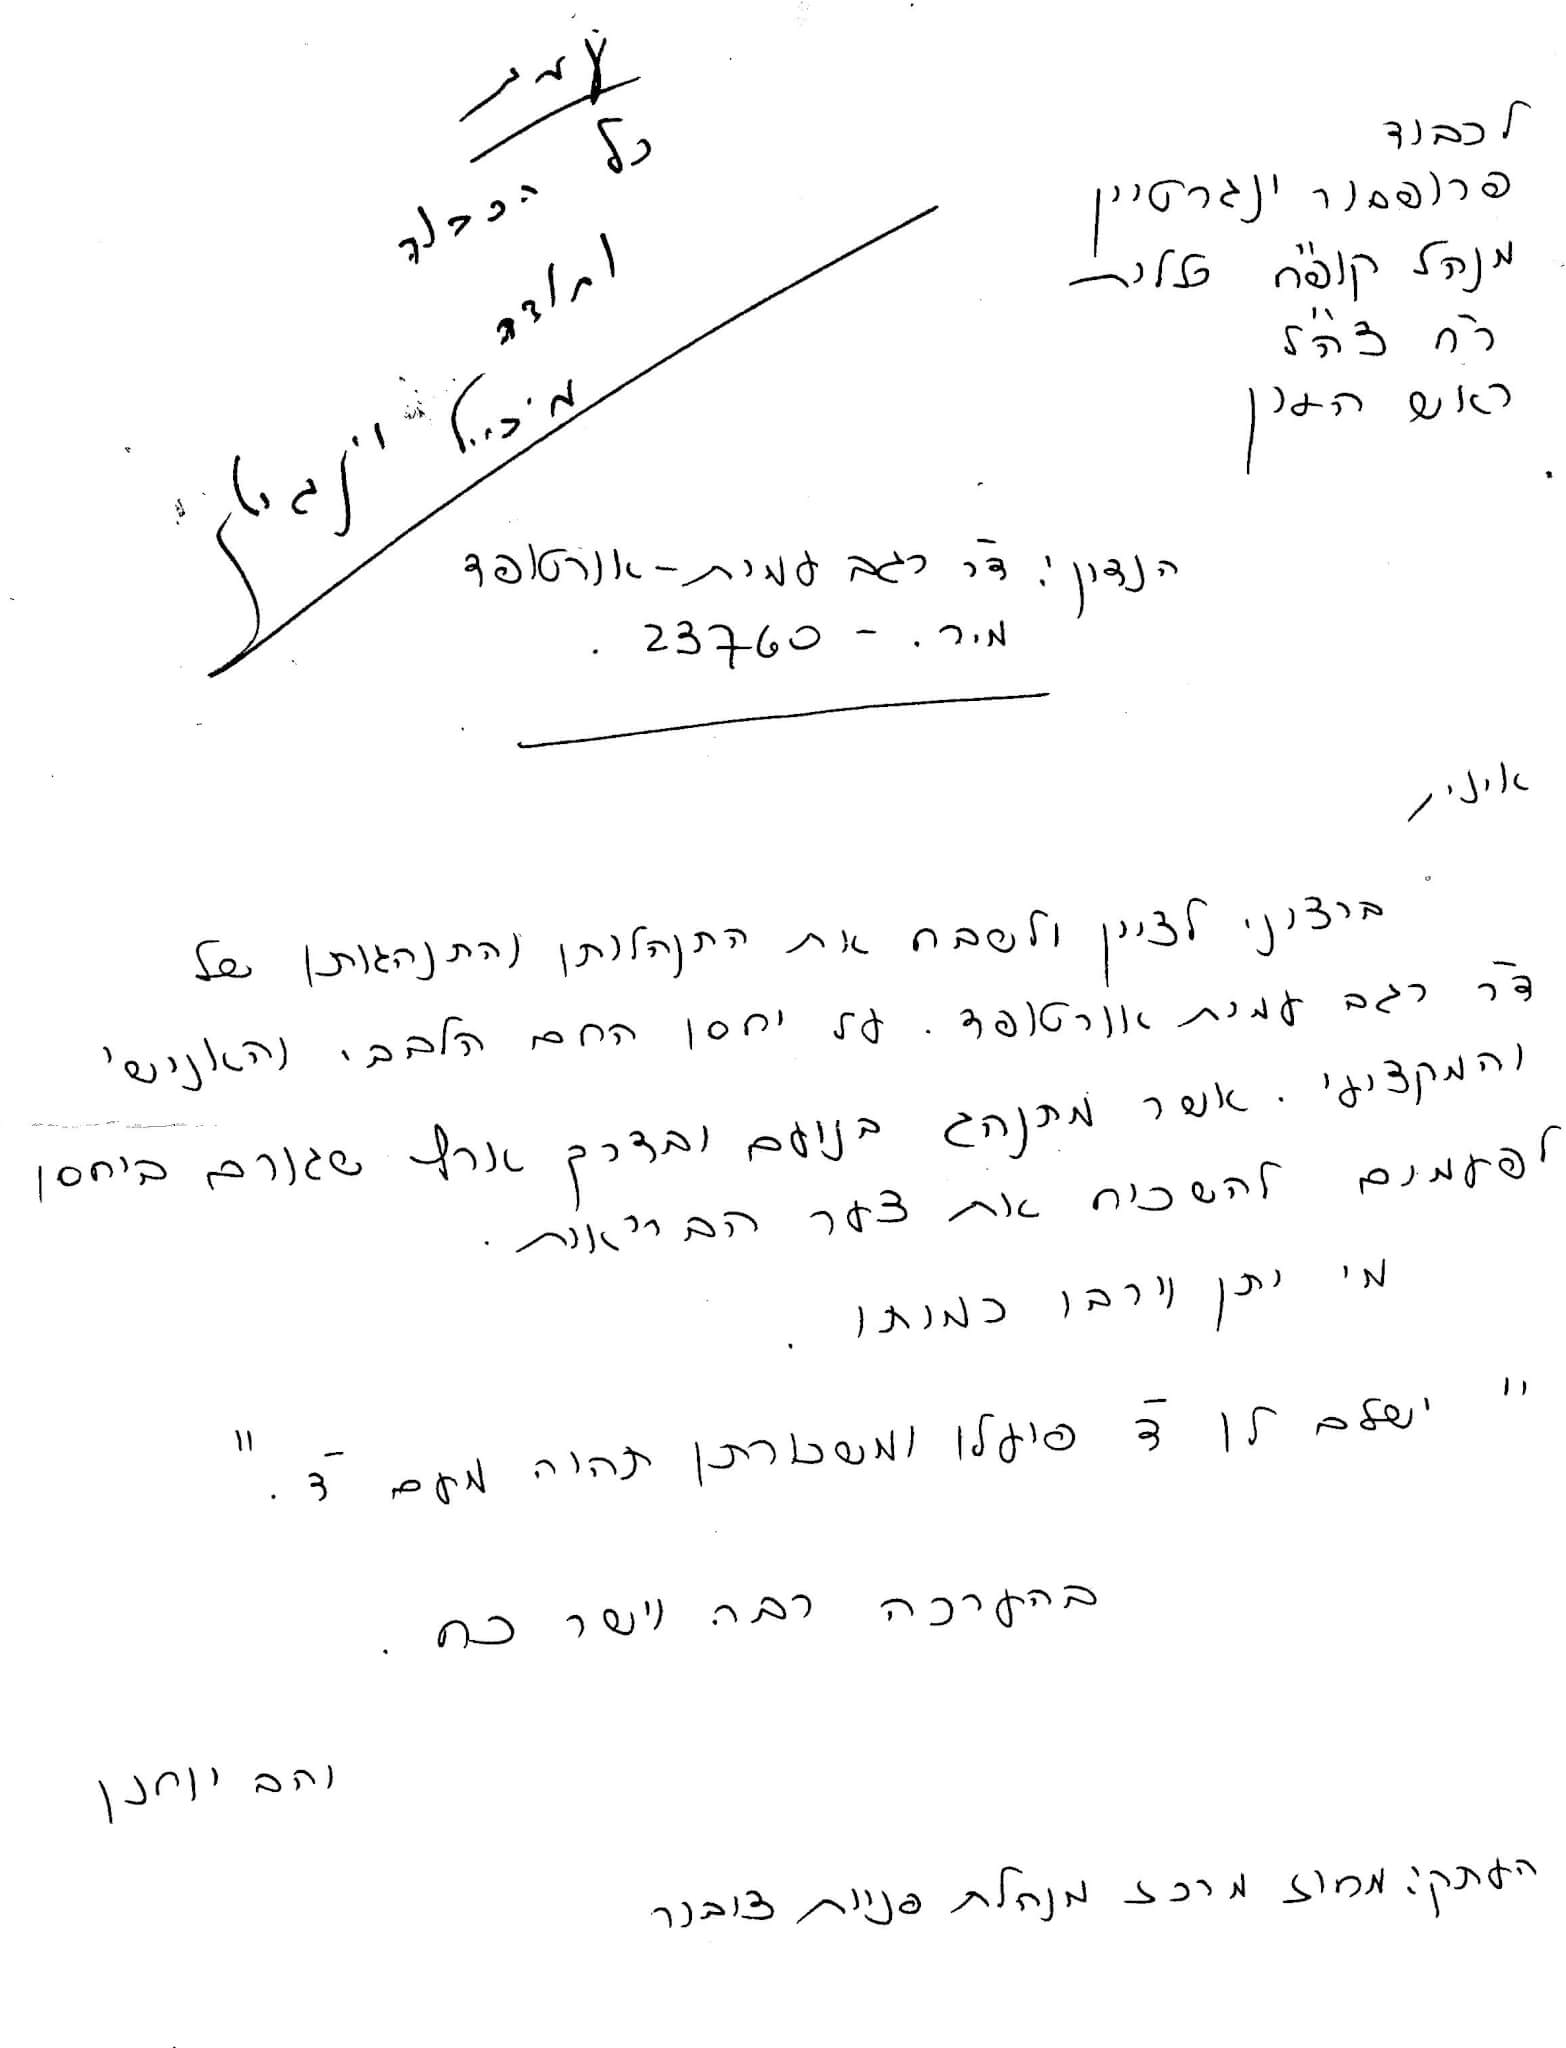 עמית
כל הכבוד
ותודה
מיכאל וינגרטן
לכבוד
פרופסור ינגרטיין
מנהל קופ"ח כללית
רח' צה"ל
ראש העין
הנדון: ד"ר רגב עמית - אורטופד
מ.יר. - 23760.
א.נ.,
ברצוני לציין ולשבח את התנהלותו והתנהגותו של
ד"ר רגב עמית אורטופד. על יחסו החם הלבבי והאנישי
והמקצועי. אשר מתנהג בנועם ובדרך ארץ שגורם ביחסו
לפעמים להשכיח את צער הבריאות.
מי יתן וירבו כמותו.
"ישלם לו ד' פועלו ומשכורתו תהוה מעם ד'."
בהערכה רבה ויישר כח.
והב יוחנן
העתק: מחוז מרכז מנהלת פניות ציבור